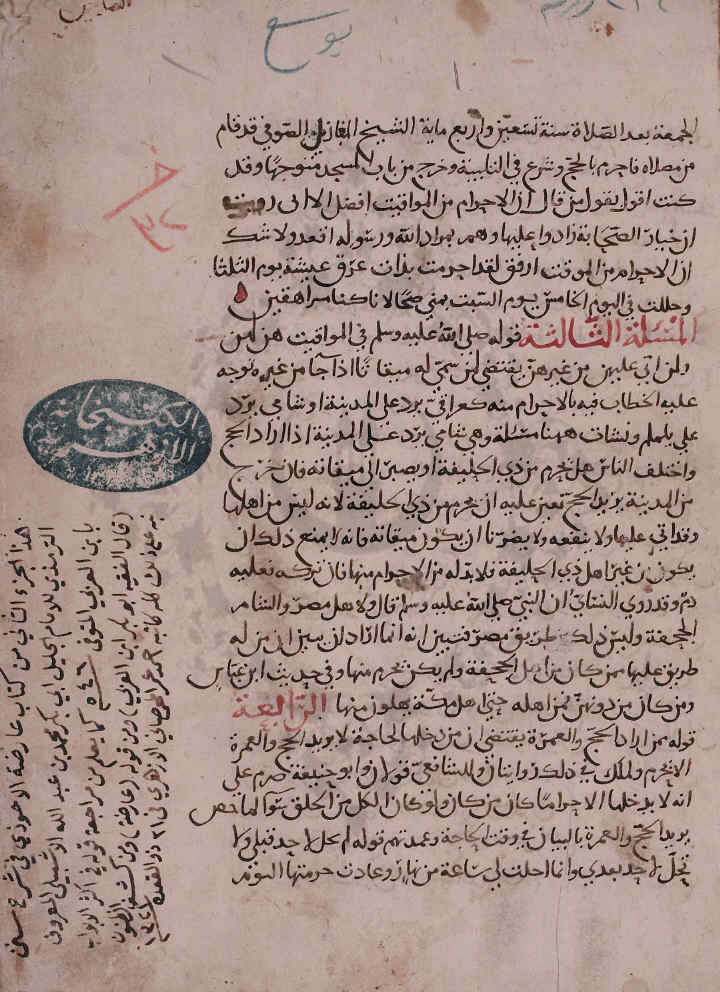 يوسع
الجمعة بعد الصلاة سنة تسعين واربع ماية الشيخ المغازلي الصوفي قد قام
من مصلاه فاحرم بالحج وشرع في التلبية وخرج من باب المسجد متوجها وقد
كنت اقول بقول من قال ان الاحرام من المواقيت افضل الا انى رويت
ان خيار الصحابة زادوا عليها وهم بمراد الله ورسوله اقعد ولا شك
ان الاحرام من الموقت ارفق لقد احرمت بذات عرق عيشة يوم الثلثا
وحللت في اليوم الخامس يوم السبت بمنى ضحا لانا كنا مراهقين
المسئلة الثالثة قوله صلى الله عليه وسلم في المواقيت هن لهن
ولمن اتى عليهن من غير هن يقتضي لمن سمى له ميقاتا اذا جا من غيره توجه
عليه الخطاب فيه بالاحرام منه كعراقي يرد على المدينة او شامي يرد
على يلملم ونشات ههنا مسئلة وهي شامي يرد على المدينة اذا اراد الحج
واختلف الناس هل يحرم من ذي الحليفة او يصير الى ميقاته فان خرج
من المدينة يريد الحج تعين عليه ان يحرم من ذي الحليفة لانه ليس من اهلها
وقد اتى عليها ولا ينفعه ولا يضرنا ان يكون ميقاته فانه لا يمنع ذلك ان
يكون من غير اهل ذي الحليفة فلا بد له من الاحرام منها فان تركه فعليه
دم وقد روي النسائي ان النبي صلى الله عليه وسلم قال ولاهل مصر والشام
الجحفة وليس ذلك طريق مصر فتبين انه انما اراد ان يبين ان من له
طريق عليها ممن كان من اهل الجحيفة ولم يكن يحرم منها وفي حديث ابن عباس
ومن كان من دونهن فمن اهله حتى اهل مكة يهلون منها الرابعة
قوله ممن اراد الحج والعمرة يقتضي ان من دخلها لحاجة لا يريد الحج والعمرة
الا يحرم ولملك في ذلك روايتان وللشافعي قولان وابو حنيفة صرم على
انه لا يدخلها الا حراما كان من كان ولو كان الكل من الخلق سوا لما خص
يريد الحج والعمرة بالبيان في وقت الحاجة وعمدتهم قوله لم تحل لاحد قبلي ولا
تحل لاحد بعدي وانما احلت لي ساعة من نهار وعادت حرمتها اليوم
الكتبخانة
الازهرية
هذا الجزء الثاني من كتاب عارضة الاحوذي في شرح سنن
الترمذي للامام الجليل ابي بكر محمد بن عبد الله الاشبيلي المعروف
بابن العربي المتوفى ٥٤٦ كما يعلم من مراجعة قوله في اكثر الابواب
(قال الفقيه ابو بكر ابن العربي) ومن قوله (عارضة) ومن كشف الظنون
نبه على ذلك كله كاتبه احمد الازهري في ٢١ ذو القعدة